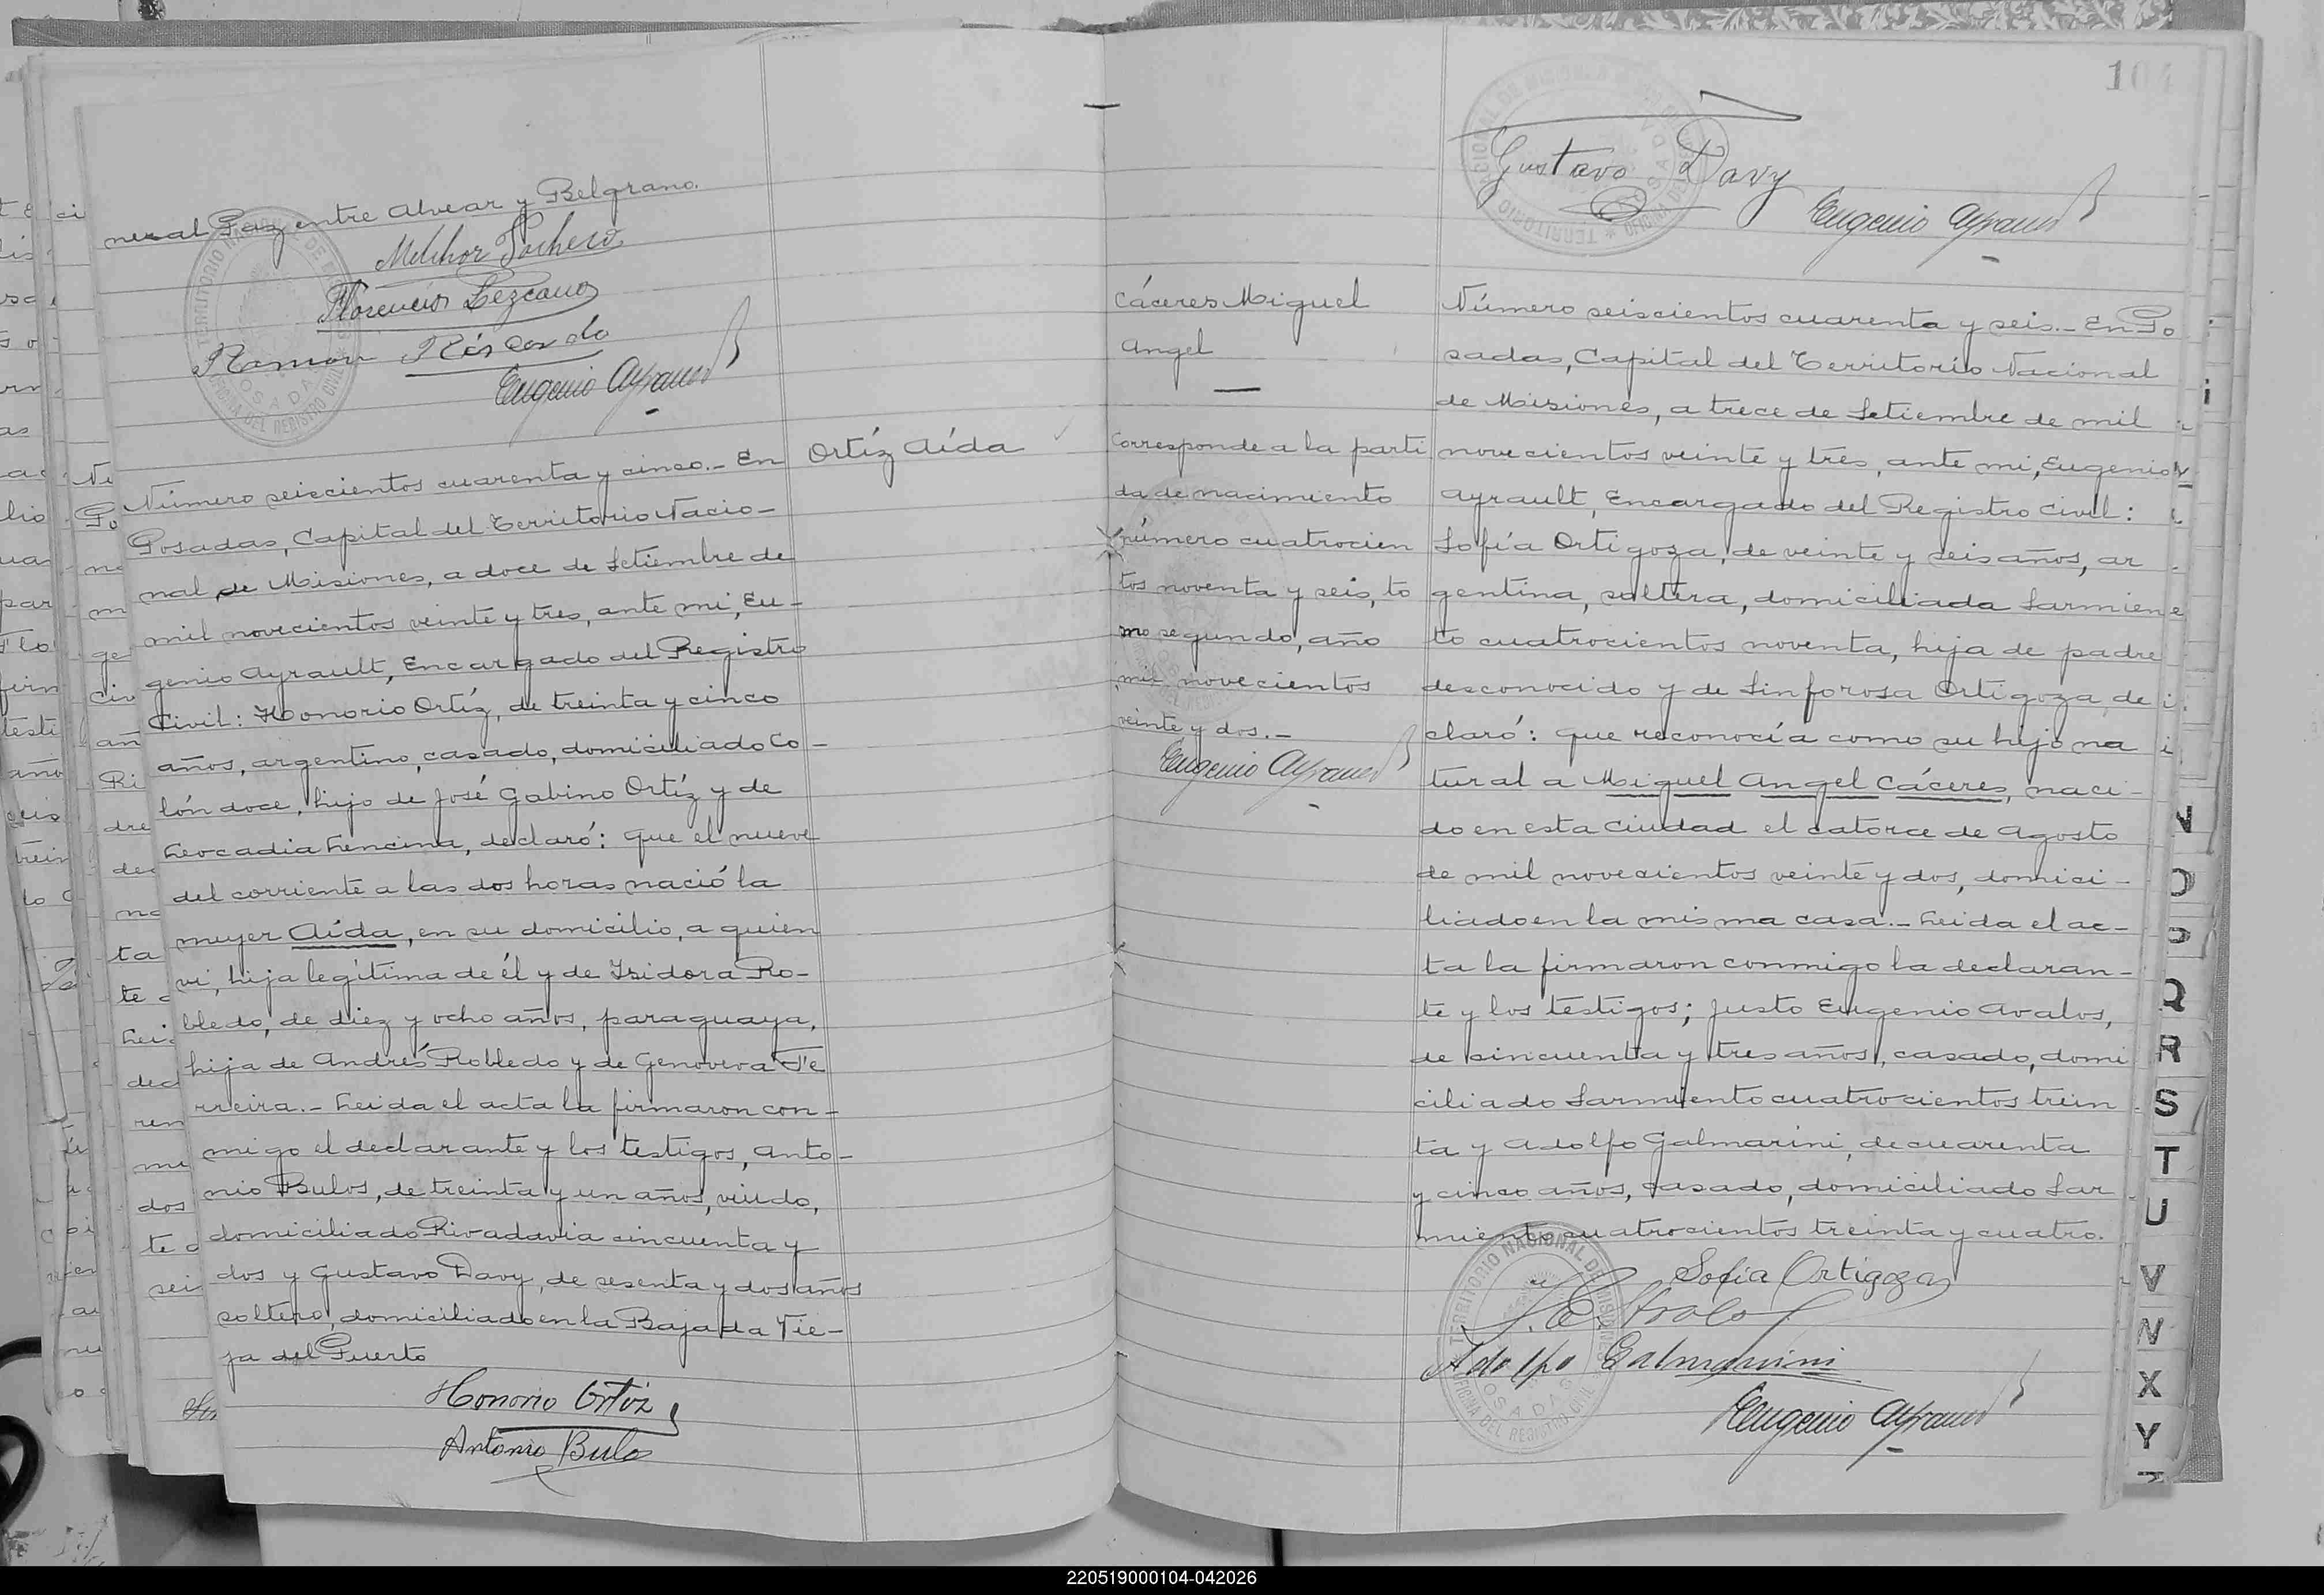 neral Paz entre Alvear y Belgrano.
Melchor Pacheco
Florencio Lezcano
Ramon
Eugenio Ayrault
Número seiscientos cuarenta y cinco.- En
Posadas, Capital del Territorio Nacio-
nal de Misiones, a doce de Setiembre de
mil novecientos veinte y tres, ante mi, Eu-
genio Ayrault, Encargado del Registro
Civil: Honorio Ortíz, de treinta y cinco
años, argentino, casado, domiciliado Co-
lón doce, hijo de José Gabino Ortíz y de
Leocadia Lencina, declaró: que el nueve
del corriente a las dos horas nació la
mujer Aída, en su domicilio, a quien
vi, hija legítima de él y de Isidora Ro-
bledo, de diez y ocho años, paraguaya,
hija de Andrés Robledo y de Genoveva Fe
rreira.- Leida el acta la firmaron con-
migo el declarante y los testigos, Anto-
nio Bulos, de treinta y un años, viudo,
domiciliado Rivadavia cincuenta y
dos y Gustavo Davy, de sesenta y dos años
soltero, domiciliado en la Bajada Vie-
ja del Puerto
Honorio Ortiz
Antonio Bulo
Ortíz Aída
104
Gustavo Davy
Eugenio Ayrault
Cáceres Miguel
Angel
Corresponde a la parti
da de nacimiento
número cuatrocien
tos noventa y seis, to
mo segundo, año
mil novecientos
veinte y dos.-
Eugenio Ayrault
Número seiscientos cuarenta y seis.- En Po
sadas, Capital del Territorio Nacional
de Misiones, a trece de Setiembre de mil
novecientos veinte y tres, ante mi, Eugenio
Ayrault, Encargado del Registro Civil:
Sofía Ortigoza, de veinte y seis años, ar
gentina, soltera, domiciliada Sarmien
to cuatrocientos noventa, hija de padre
desconocido y de Sinforosa Ortigoza, de
claró: que reconocía como su hijo na
tural a Miguel Angel Cáceres, naci-
do en esta Ciudad el catorce de Agosto
de mil novecientos veinte y dos, domici-
liado en la misma casa.- Leida el ac-
ta la firmaron conmigo la declaran-
te y los testigos; Justo Eugenio Avalos,
de cincuenta y tres años, casado, domi
ciliado Sarmiento cuatrocientos trein
ta y Adolfo Galmarini, de cuarenta
y cinco años, casado, domiciliado Sar
miento cuatrocientos treinta y cuatro.
Sofia Ortigoza
Adolfo Galmarini
Eugenio Ayrault
TERRITORIO NACIONAL DE MISIONES
POSADAS
OFICINA DEL REGISTRO CIVIL
N
O
P
Q
R
S
T
U
V
X
Y
220519000104-042026